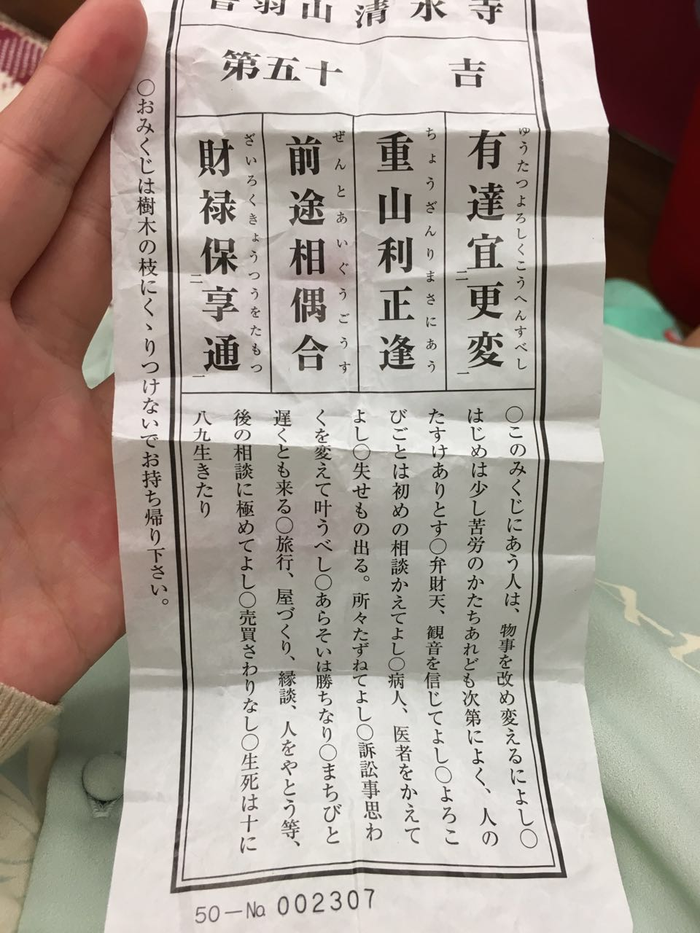 音羽山清水寺
第五十 吉
有達宜二更変一
ゆうたつよろしくこうへんすべし
重山利正逢
ちょうざんりまさにあう
前途相偶合
ぜんとあいぐうごうす
財禄保二享通一
ざいろくきょうつうをたもつ
○このみくじにあう人は、物事を改め変えるによし○
はじめは少し苦労のかたちあれども次第によく、人の
たすけありとす○弁財天、観音を信じてよし○よろこ
びごとは初めの相談かえてよし○病人、医者をかえて
よし○失せもの出る。所々たずねてよし○訴訟事思わ
くを変えて叶うべし○あらそいは勝ちなり○まちびと
遅くとも来る○旅行、屋づくり、縁談、人をやとう等、
後の相談に極めてよし○売買さわりなし○生死は十に
八九生きたり
○おみくじは樹木の枝にくゝりつけないでお持ち帰り下さい。
50－№ 002307